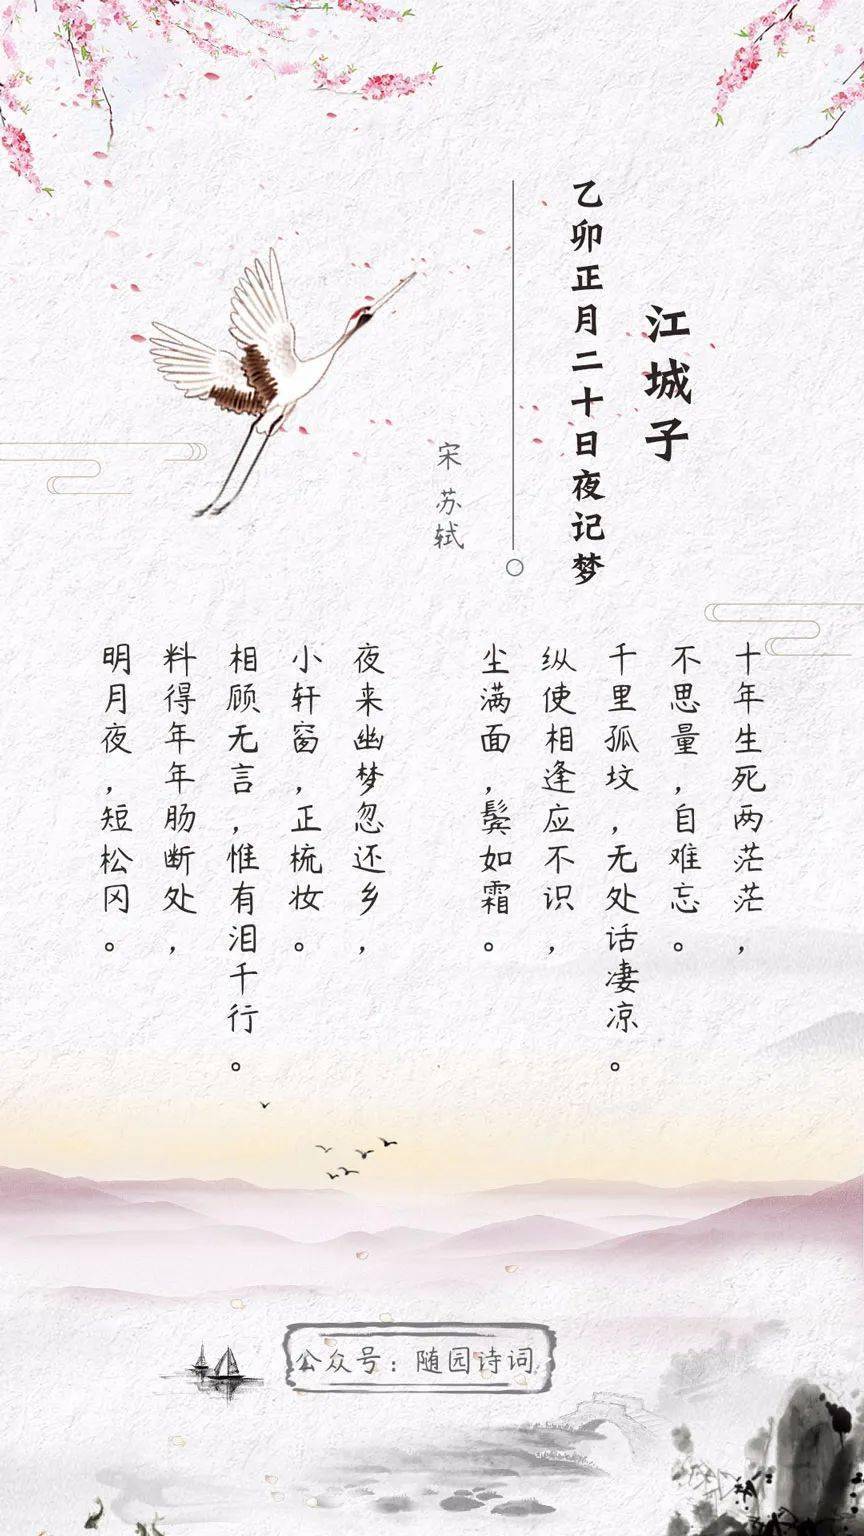 江城子
乙卯正月二十日夜记梦
宋 苏轼
十年生死两茫茫，
不思量，自难忘。
千里孤坟，无处话凄凉。
纵使相逢应不识，
尘满面，鬓如霜。
夜来幽梦忽还乡，
小轩窗，正梳妆。
相顾无言，惟有泪千行。
料得年年肠断处，
明月夜，短松冈。
公众号：随园诗词